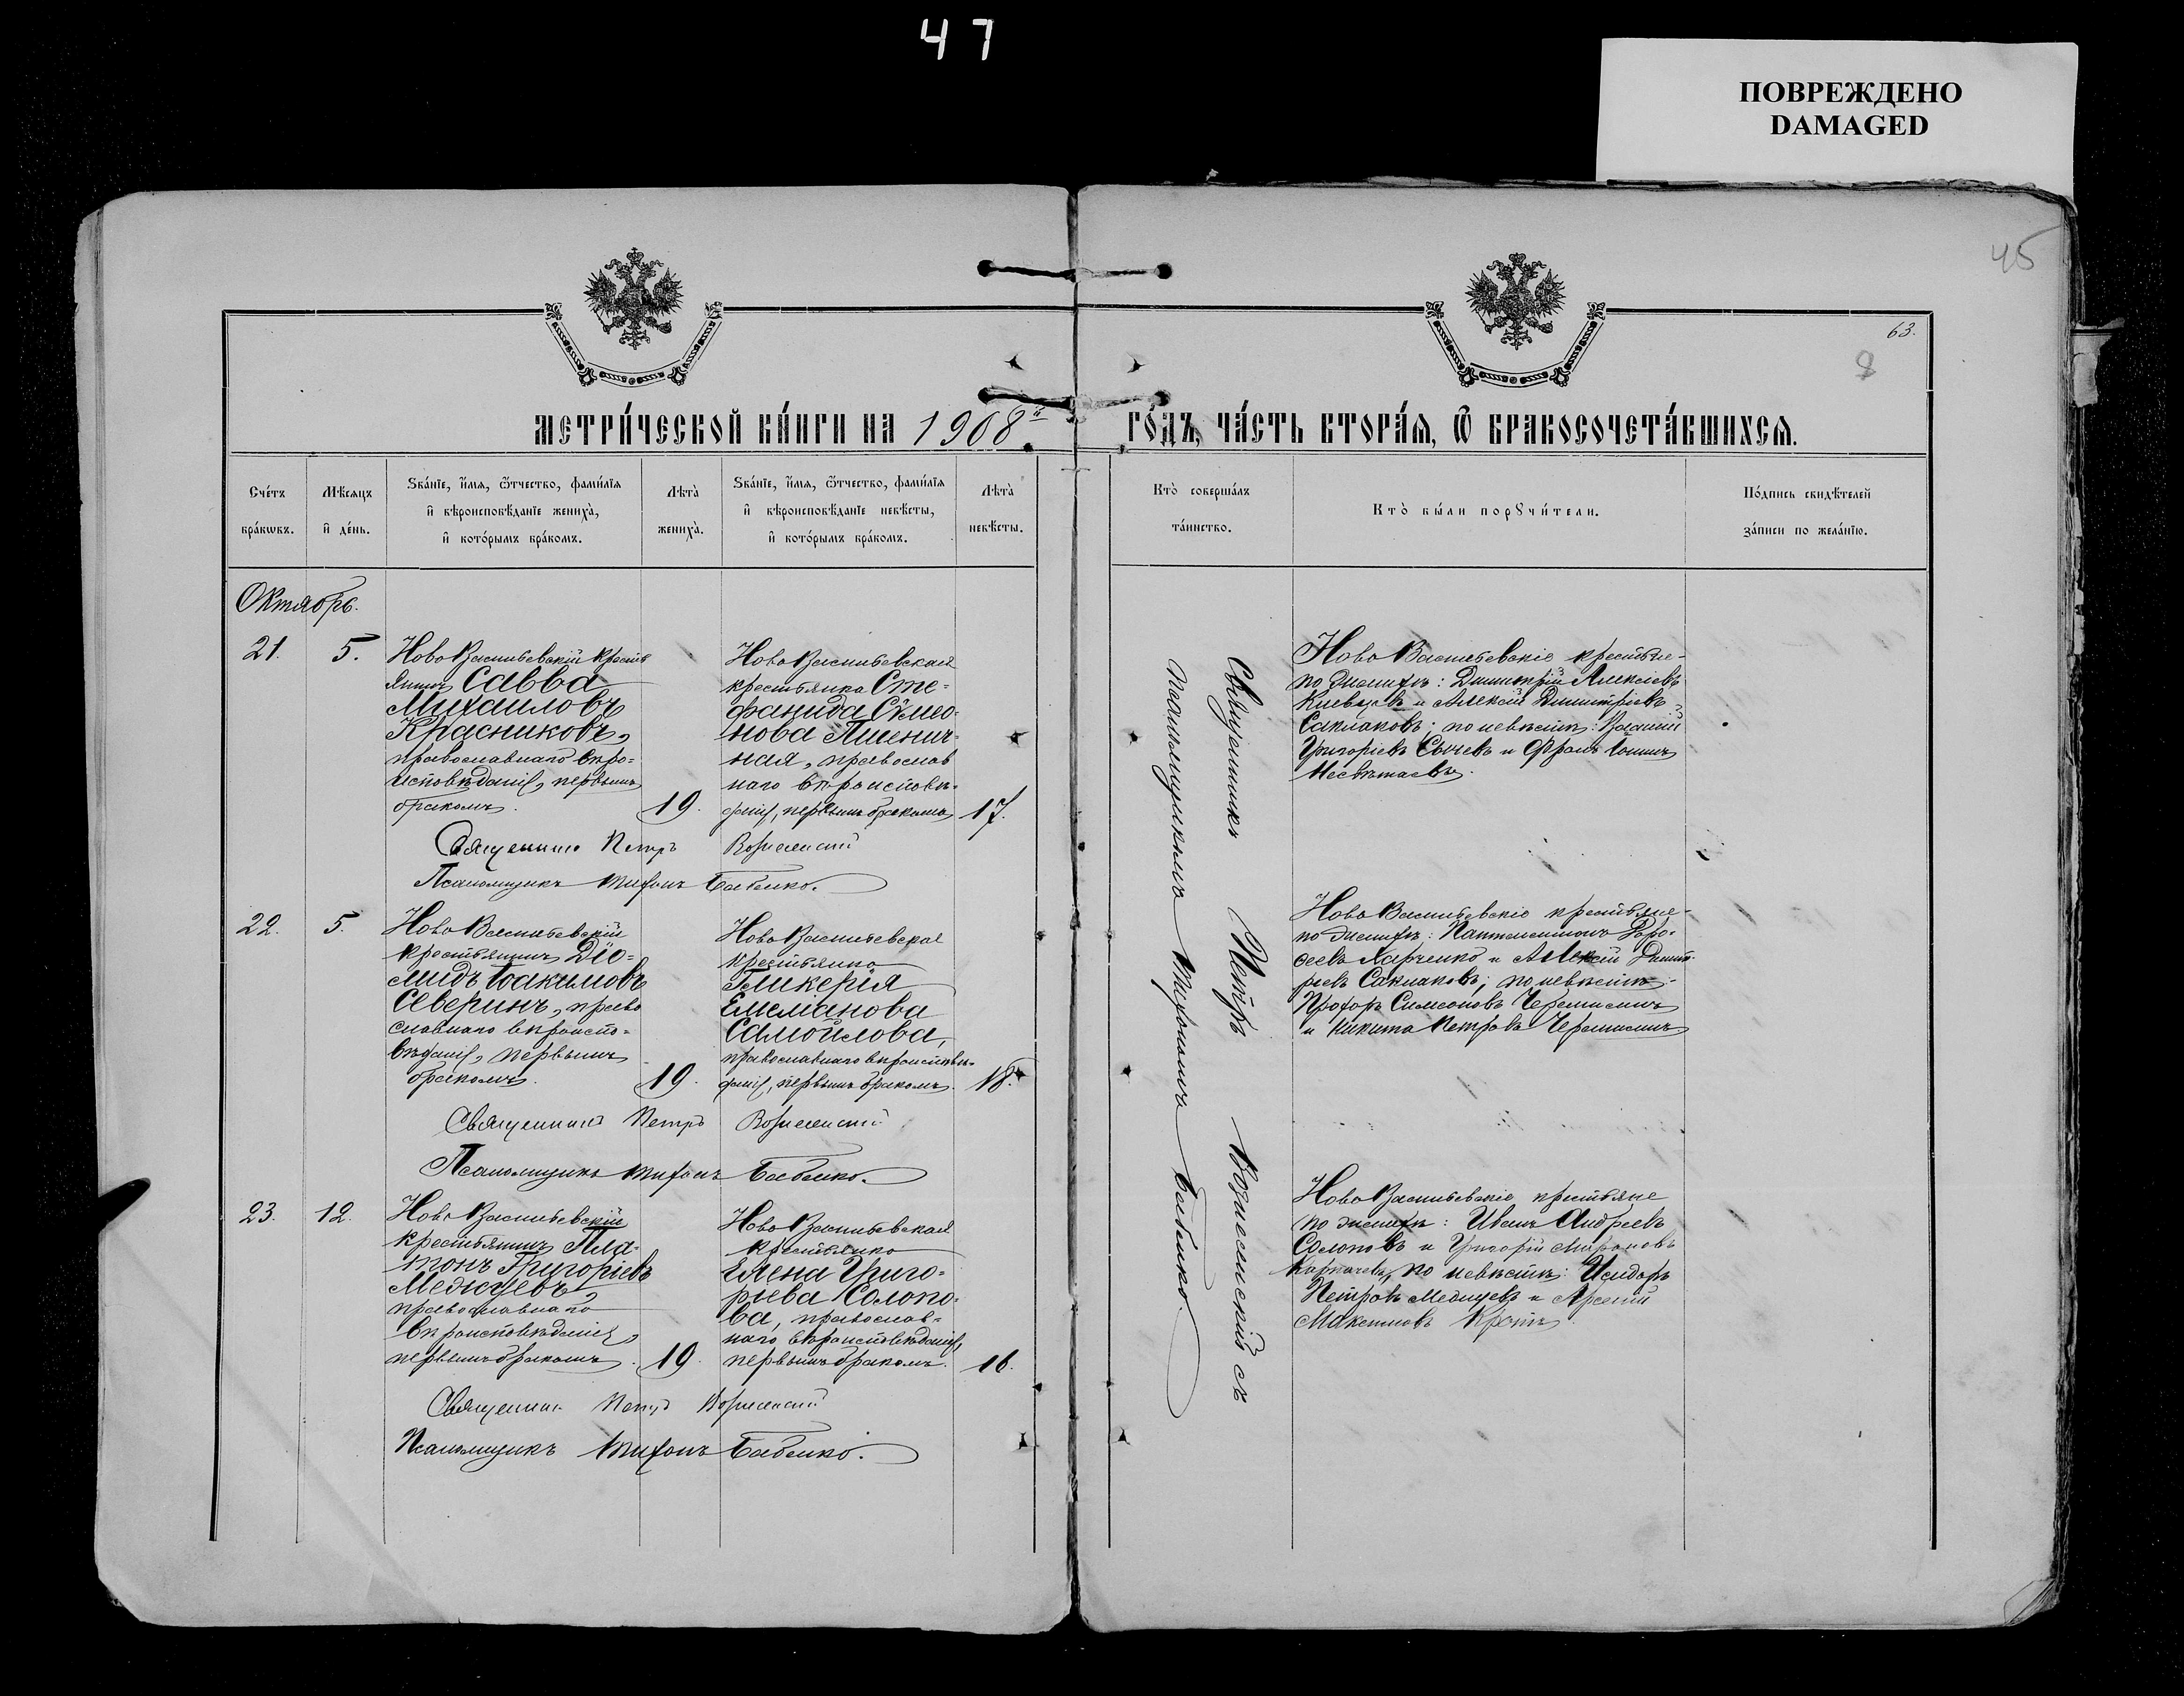 47
ПОВРЕЖДЕНО
DAMAGED
45
63.
8
МЕТРИ́ЧЕСКОЙ КНИ́ГИ НА 1908й
ГО́ДЪ, ЧА́СТЬ ВТОРА́Я, Ѡ БРАКОСОЧЕТА́ВШИХСЯ.
Сче́тъ
бра́кѡвъ.
Мѣ́сяцъ
и҆ де́нь.
Ѕва́нїе, и҆́мя, ѻ҆́тчество, фами́лїя
и҆ вѣроисповѣ́данїе жениха̀,
и҆ кото́рымъ бра́комъ.
Лѣта̀
жениха̀.
Ѕва́нїе, и҆́мя, ѻ҆́тчество, фами́лїя
и҆ вѣроисповѣ́данїе невѣ́сты,
и҆ кото́рымъ бра́комъ.
Лѣта̀
невѣ́сты.
Кто̀ соверша́лъ
та́инство.
Кто̀ бы́ли порꙋчи́тели.
По́дпись свидѣ́телей
за́писи по жела́нїю.
Октябрь.
21.
5.
Ново Васильевскій кресть
янинъ Савва
Михаиловъ
Красниковъ,
православнаго вѣро=
исповѣданія, первымъ
бракомъ.
19.
Ново Васильевская
крестьянка Сте=
фанида Сѵмео=
нова Пшенич=
ная, православ
наго вѣроисповѣ=
данія, первымъ бракомъ
17.
Священникъ Петръ Вознесенскій
Псаломщикъ Тихонъ Бабенко.
Ново Васильевскіе крестьяне-
по женихѣ: Димитрій Алексѣевъ
и Алексій Димитріевъ
Саклаковъ; по невѣстѣ: Василій
Григоріевъ Сычевъ и
22.
5.
Ново Васильевскій
крестьянинъ Діо=
мидъ Іоакимовъ
Северинъ, право
славнаго вѣроиспо=
вѣданія, первымъ
бракомъ.
19.
Ново Васильевская
крестьянка
Гликерія
Емеліанова
Самойлова,
православнаго вѣроисповѣ=
данія, первымъ бракомъ.
18.
Священникъ Петръ Вознесенскій
Псаломщикъ Тихонъ Бабенко.
Ново Васильевскіе крестьяне-
по женихѣ: Пантелеимонъ Доро=
феевъ Харченко и Алексій Димит-
ріевъ Саклаковъ; по невѣстѣ-
Прохоръ Симеоновъ Черемисинъ
и Никита Петровъ Черемисинъ
23.
12.
Ново Васильевскій
крестьянинъ Пла=
тонъ Григоріевъ
Медищевъ,
православнаго
вѣроисповѣданія,
первымъ бракомъ.
19.
Ново Васильевская
крестьянка
Елена Григо=
рьева Солопо=
ва, православ=
наго вѣроисповѣданія,
первымъ бракомъ.
16.
Священникъ Петръ Вознесенскій
Псаломщикъ Тихонъ Бабенко.
Ново Васильевскіе крестьяне
по женихѣ: Иванъ Андреевъ
Солоповъ и Григорій Мироновъ
Карпачевъ, по невѣстѣ: Исидоръ
Петровъ Медищевъ и Арсеній
Максимовъ Кротъ
Священникъ Петръ Вознесенскій съ
псаломщикомъ Тихономъ Бабенко